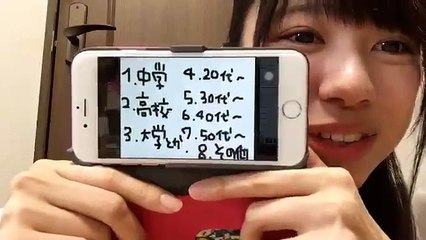 1.中学
2.高校
3.大学とか
4.20代〜
5.30代〜
6.40代〜
7.50代〜
8.その他